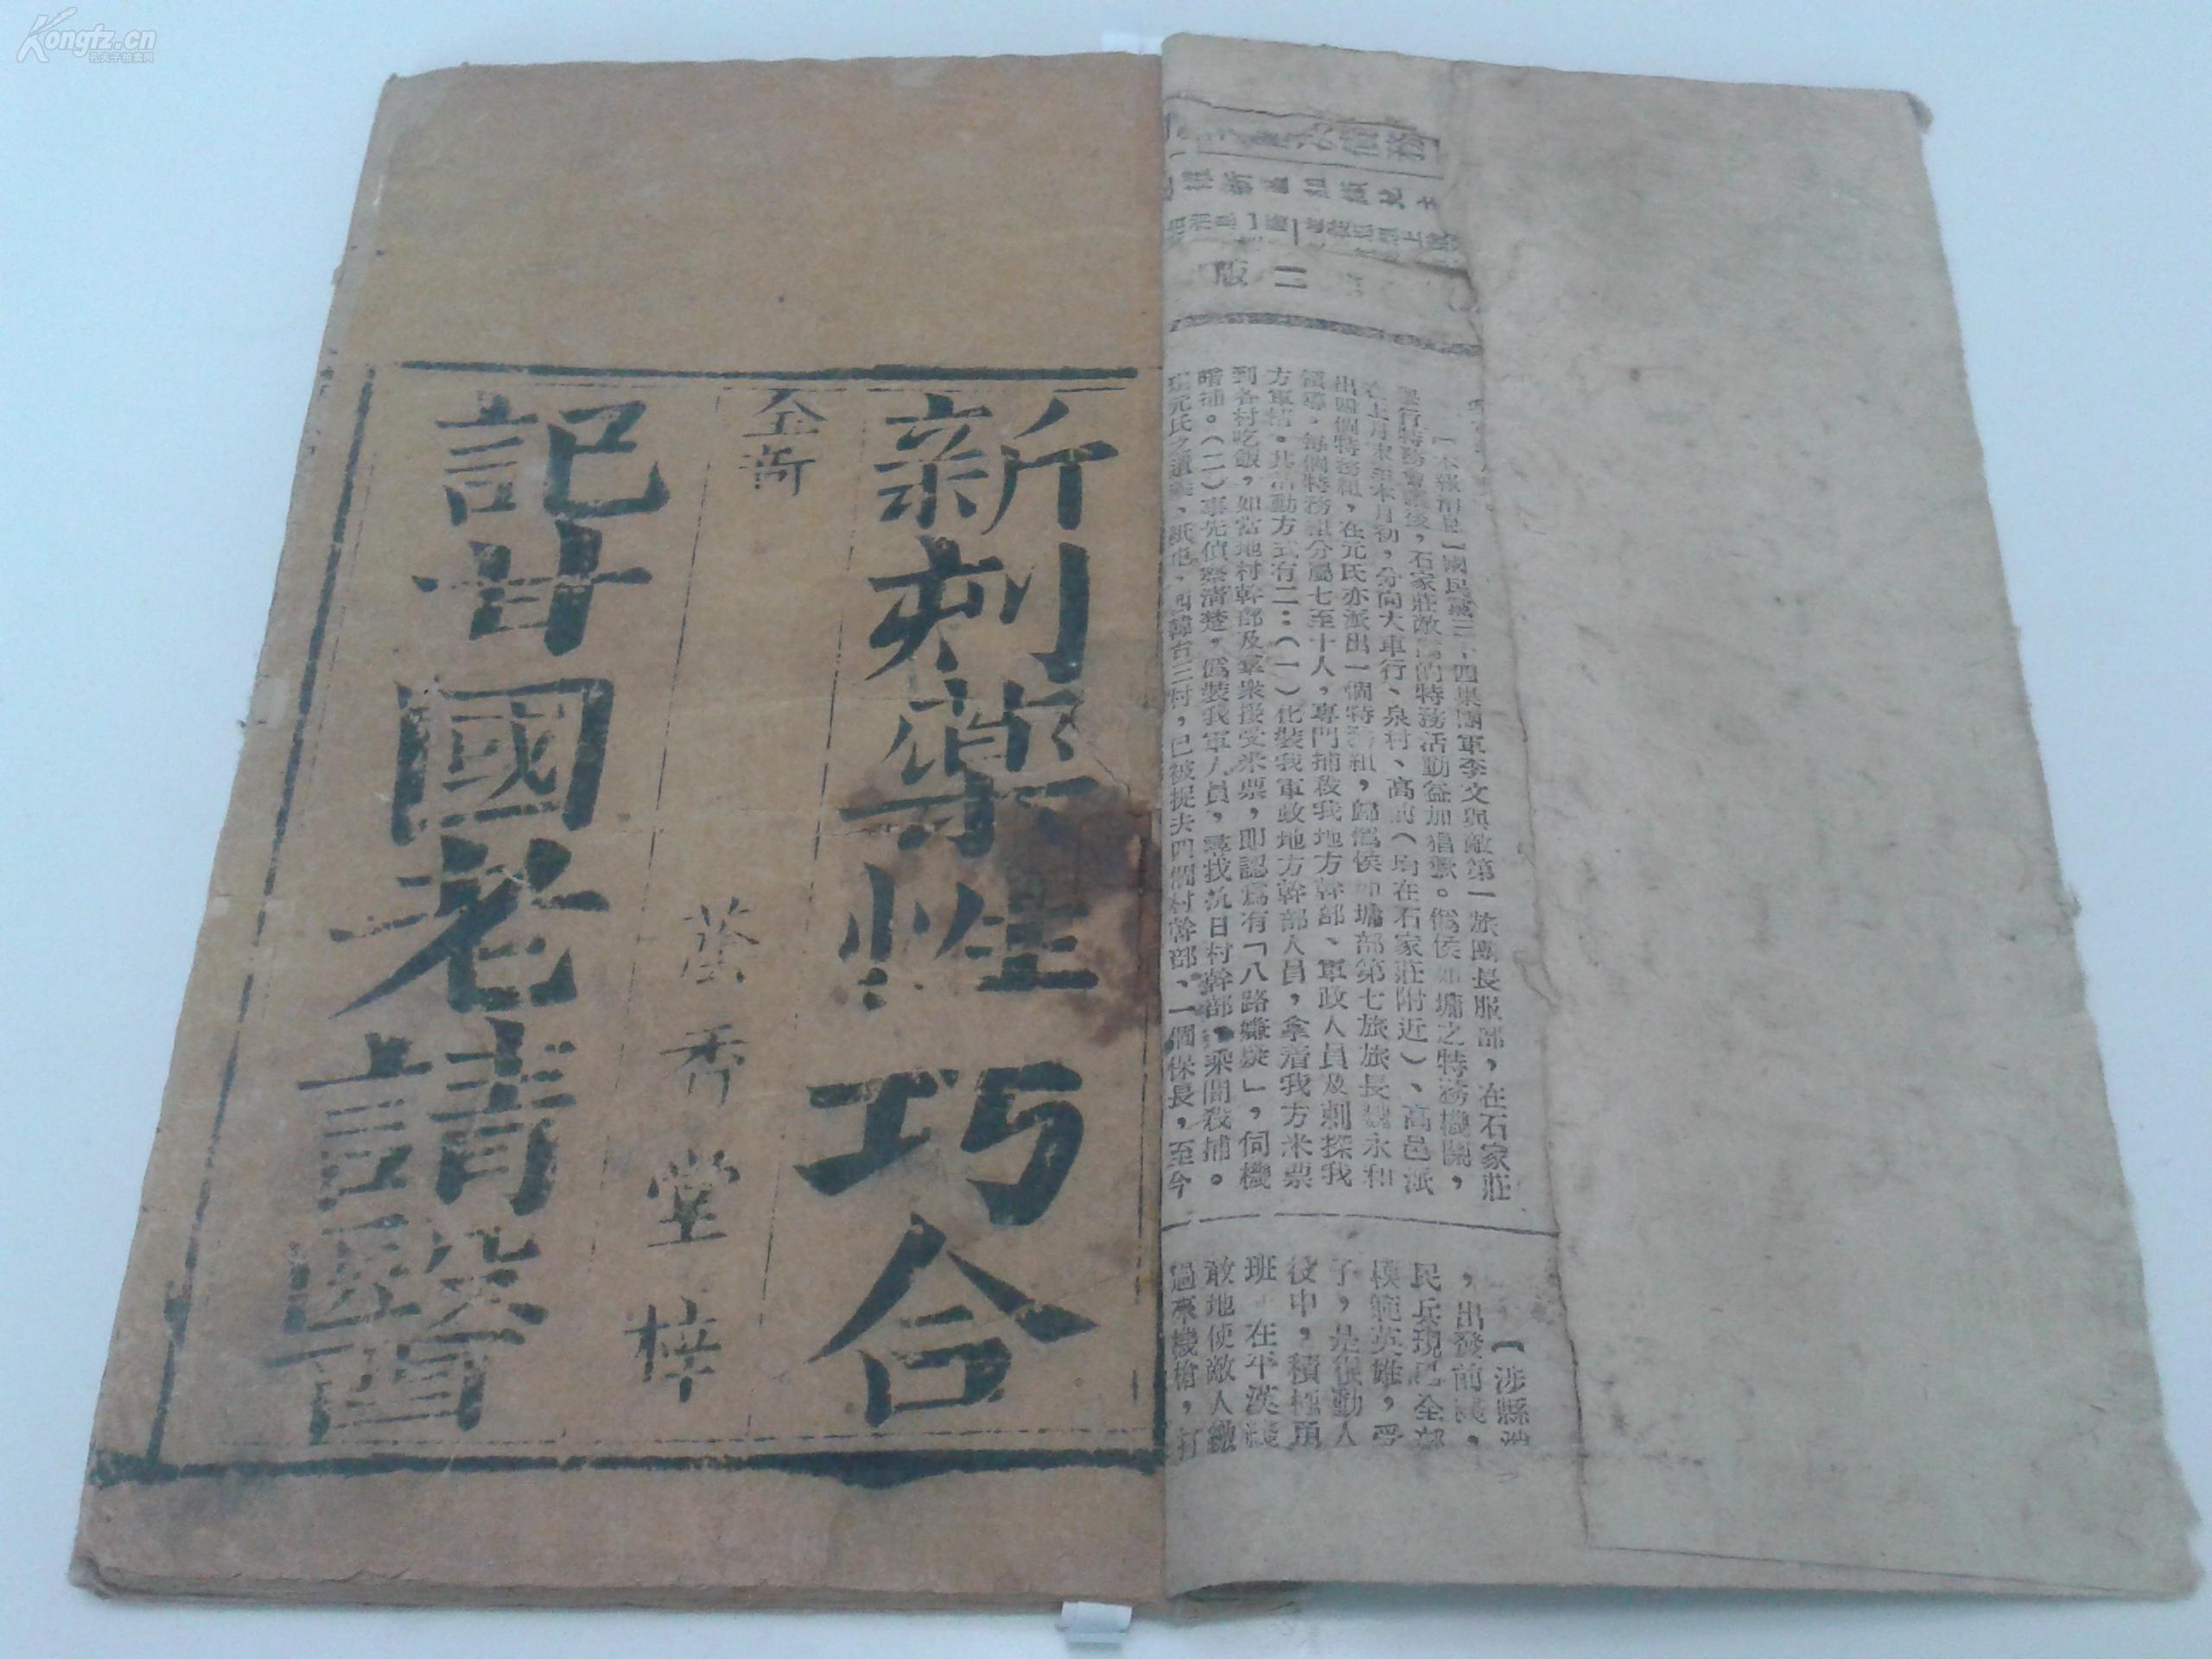 Kongfz.cn
孔夫子拍卖网
新刻藥性巧合
全啇
蘊秀堂梓
記甘國老請醫
二版
【本報消息】國民黨三十四集團軍李文與敵第一旅團長服部,在石家莊
舉行特務會議後,石家莊敵僞的特務活動益加猖獗。僞侯如墉之特務機關,
在上月末至本月初,分向大車行、泉村、高前(均在石家莊附近)、高邑派
出四個特務組,在元氏亦派出一個特務組,歸僞侯如墉部第七旅旅長魏永和
領導。每個特務組分屬七至十人,專門捕殺我地方幹部、軍政人員及刺探我
方軍情。其活動方式有二:(一)化裝我軍政地方幹部人員,拿着我方米票
到各村吃飯,如當地村幹部及羣衆接受米票,即認爲有「八路嫌疑」,伺機
暗捕。(二)事先偵察清楚,僞裝我軍人員,尋找抗日村幹部,乘間殺捕。
現元氏之、紙屯、西韓台三村,已被捉去四個村幹部、一個保長,至今
【涉縣
,出發前綫,
民兵現已全部
模範英雄,受
了,是很動人
役中,積極項
班 在平漢綫
敢地使敵人繳
過來機槍,打